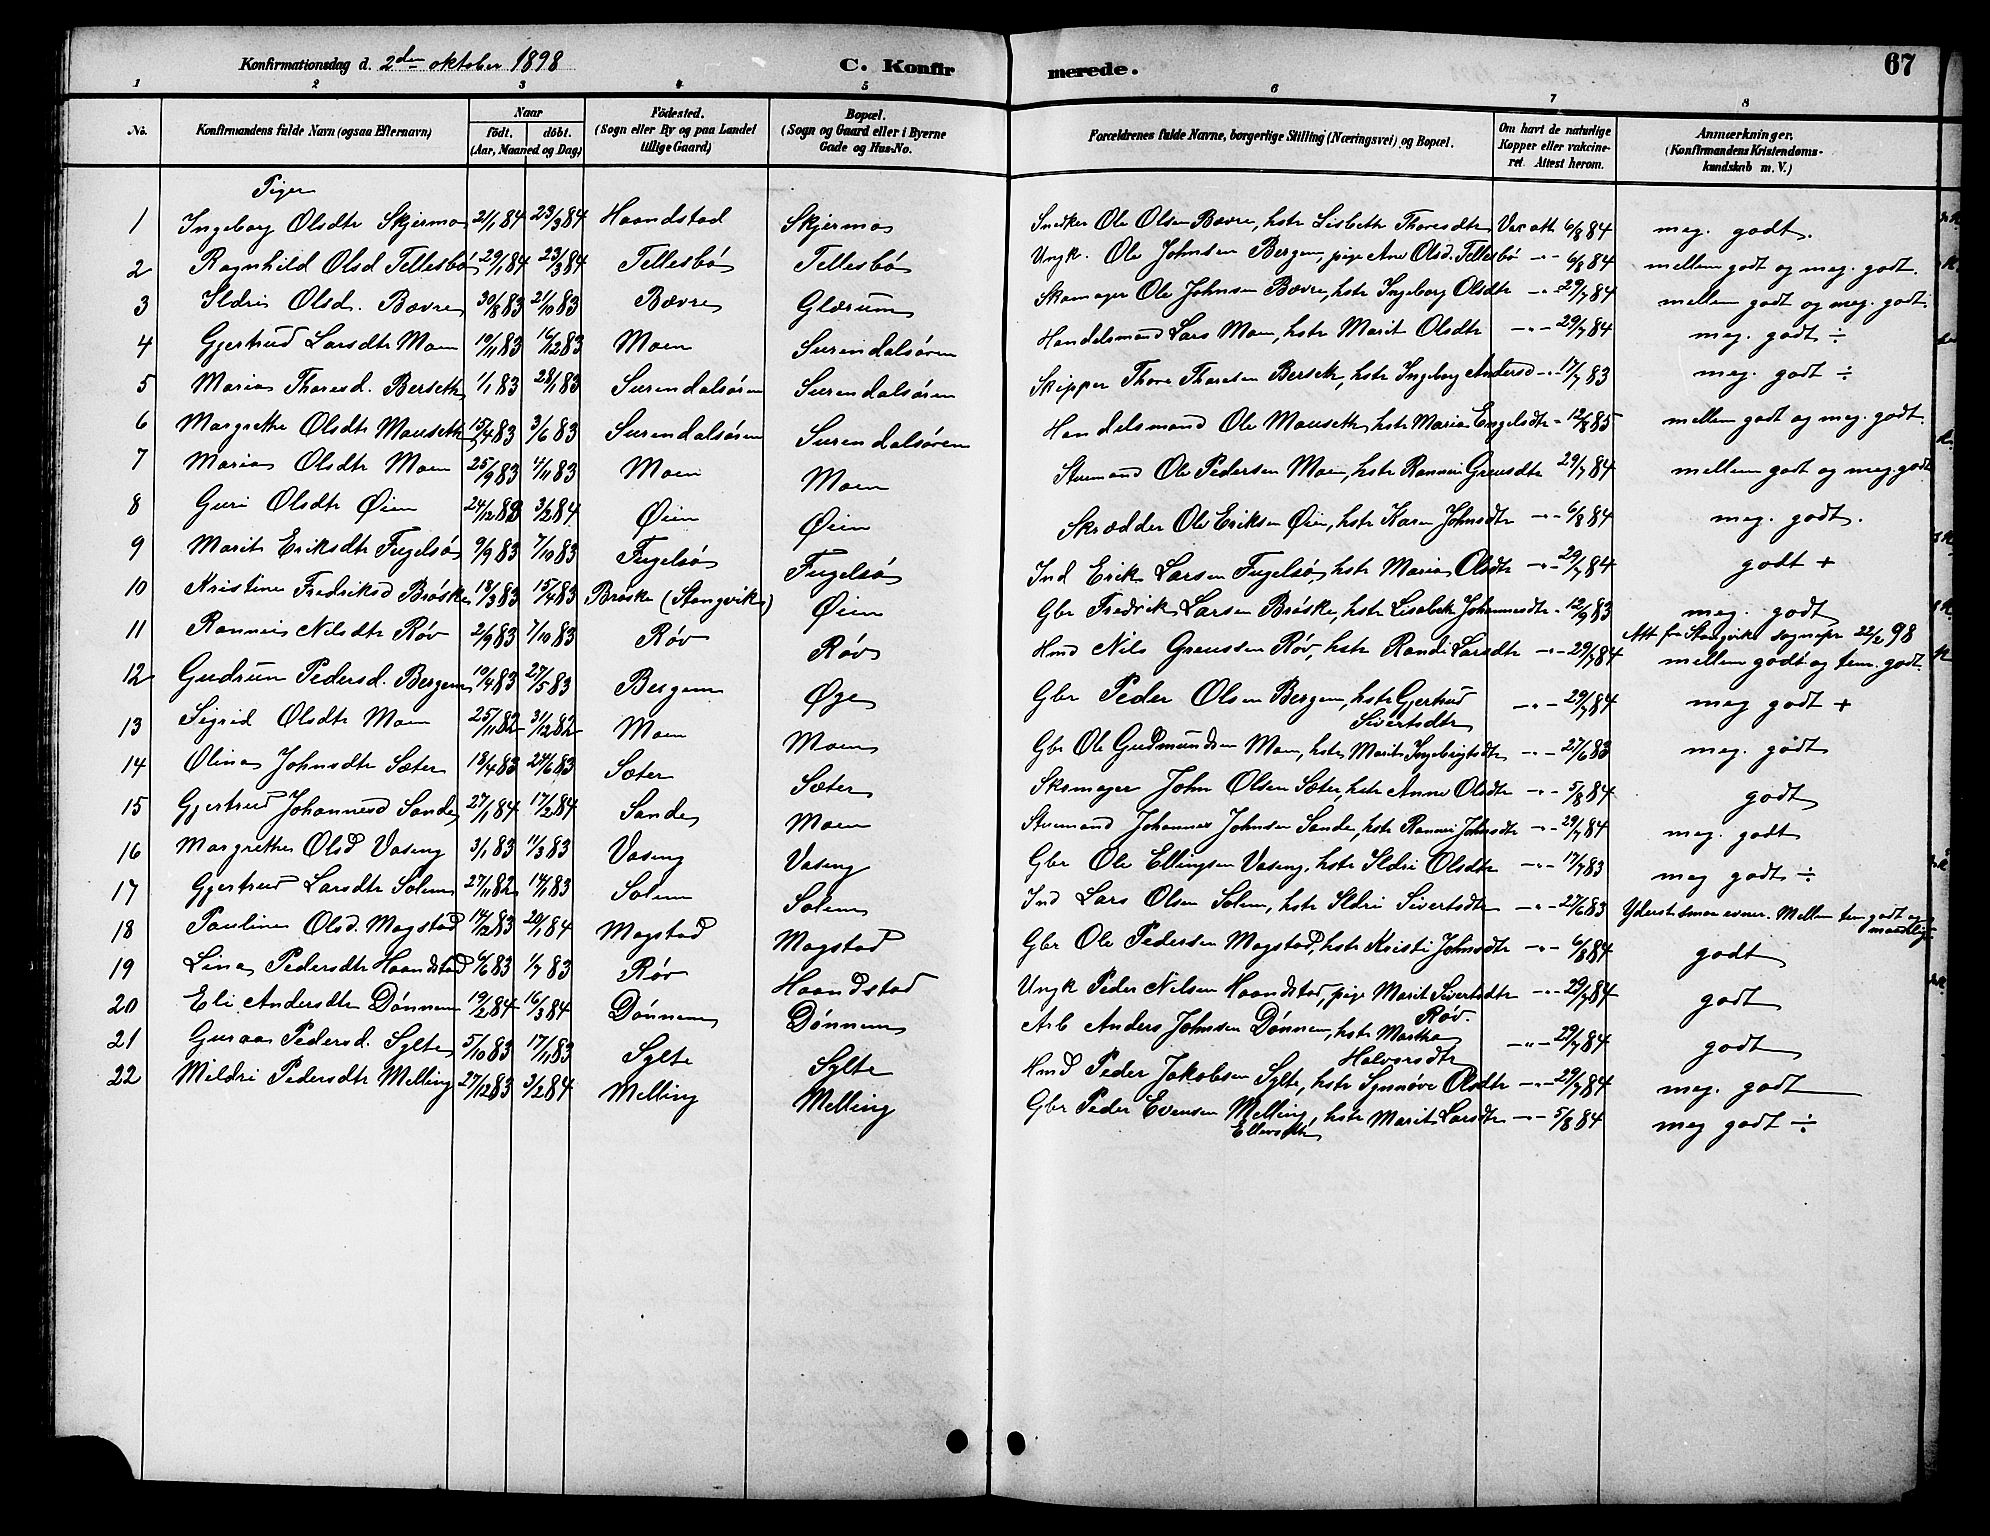 Konfirmationsdag d. 2den oktober 1898 C. Konfirmerede. 67
1 2 3 4 5 6 7 8
No. Konfirmandens fulde Navn (ogsaa Efternavn) Naar födt. döbt. (Aar, Maaned og Dag) Födested. (Sogn eller By og paa Landet tillige Gaard) Bopæl. (Sogn og Gaard eller i Byerne Gade og Hus-No. Forældrenes fulde Navne, borgerlige Stilling (Næringsvei) og Bopæl. Om havt de naturlige Kopper eller vakcineret. Attest herom. Anmærkninger. (Konfirmandens Kristendomskundskab m. V.)
Piger
1 Ingeborg Olsdtr Skjermo 21/1 84 23/3 84 Haandstad Skjermo Snedker Ole Olsen Bævre, hstr Lisbeth Thoresdtr Vac att 6/8 84 meg. godt.
2 Ragnhild Olsd Tellesbö 29/1 84 23/3 84 Tellesbö Tellesbö Ungk. Ole Johnsen Bergem, pige Ane Olsd. Tellesbö -"- 6/8 84 mellem godt og meg. godt.
3 Ildri Olsd. Bævre 30/8 83 21/10 83 Bævre Glærum Skomager Ole Johnsen Bævre, hstr Ingeborg Olsdtr -"- 29/7 84 mellem godt og meg. godt.
4 Gjertrud Larsdtr Moen 10/11 83 16/12 83 Moen Surendalsøren Handelsmand Lars Moen, hstr Marit Olsdtr -"- 29/7 84 meg. godt ÷
5 Maria Thoresd. Berseth 1/1 83 28/1 83 Surendalsøren Surendalsøren Skipper Thore Thoresen Berseth, hstr Ingeborg Andersd -"- 17/7 83 meg. godt ÷
6 Margrethe Olsdtr Mauseth 15/4 83 3/6 83 Surendalsøren Surendalsøren Handelsmand Ole Mauseth hstr Maria Engelsdtr -"- 12/8 85 mellem godt og meg. godt.
7 Maria Olsdtr Moen 25/9 83 4/11 83 Moen Moen Stuemand Ole Pedersen Moen, hstr Rannei Greusdtr 29/7 84 mellem godt og meg. godt
8 Guri Olsdtr Øien 24/12 83 3/2 84 Øien Øien Skrædder Ole Eriksen Øien, hstr Karen Johnsdtr -"- 6/8 84 meg. godt.
9 Marit Eriksdtr Fugelsö 9/9 83 7/10 83 Fugelsö Fugelsö Ind Erik Larsen Fugelsö, hstr Maria Olsdtr -"- 29/7 84 godt +
10 Kristine Fredriksd Bröske 18/3 83 15/4 83 Bröske (Stangvik) Øien Gbr Fredrik Larsen Bröske, hstr Lisabeth Johannesdtr -"- 12/9 83 meg. godt
Att fra Stangviks sognepr 22/2 98
11 Rannei Nilsdtr Röv 2/9 83 7/10 83 Röv Röv Hmd Nils Greussen Röv, hstr Randi Larsdtr -"- 29/7 84 mellem godt og tem. godt.
12 Gudrun Pedersd. Bergem 10/4 83 27/5 83 Bergem Øye Gbr Peder Olsen Bergem, hstr Gjertrud Sivertsdtr -"- 29/7 84 meg godt +
13 Sigrid Olsdtr Moen 25/11 82 31/12 82 Moen Moen Gbr Ole Gudmundsen Moen, hstr Marit Ingebrigtsdtr -"- 27/6 83 meg. godt
14 Olina Johnsdtr Sæter 18/4 83 24/6 83 Sæter Sæter Skomager John Olsen Sæter, hstr Anne Olsdtr -"- 5/8 84 godt
15 Gjertrud Johannesd Sande 27/1 84 17/2 84 Sande Moen Stuemand Johannes Johnsen Sande, hstr Rannei Johnsdtr -"- 29/7 84 meg. godt
16 Margrethe Olsd Vaseng 3/1 83 11/3 83 Vaseng Vaseng Gbr Ole Ellingsen Vaseng, hstr Ildri Olsdtr -"- 17/7 83 meg godt ÷
17 Gjertrud Larsdtr Solem 27/11 82 14/1 83 Solem Solem Ind Lars Olsen Solem, hstr Ildri Sivertsdtr -"- 27/6 83 Yderst smaa evner. Mellem tem. godt og maadelig
18 Pauline Olsd. Mogstad 17/12 83 20/1 84 Mogstad Mogstad Gbr Ole Pedersen Mogstad, hstr Kristi Johnsdtr -"- 6/8 84 godt
19 Lina Pedersdtr Haandstad 4/6 83 1/7 83 Röv Haandstad Ungk Peder Nilsen Haandstad, pige Marit Sivertsdtr Röv. -"- 29/7 84 godt
20 Eli Andersdtr Dönnem 19/2 84 16/3 84 Dönnem Dönnem Arb Anders Johnsen Dönnem, hstr Martha Halvorsdtr -"- 29/7 84 godt
21 Guraa Pedersd. Sylte 5/10 83 17/11 83 Sylte Sylte Hmd Peder Jakobsen Sylte, hstr Synnöve Olsdtr -"- 29/7 84 meg. godt
22 Mildri Pedersdtr Melling 27/12 83 3/2 84 Melling Melling Gbr Peder Evensen Melling, hstr Marit Larsdtr -"- 5/8 84 meg godt ÷